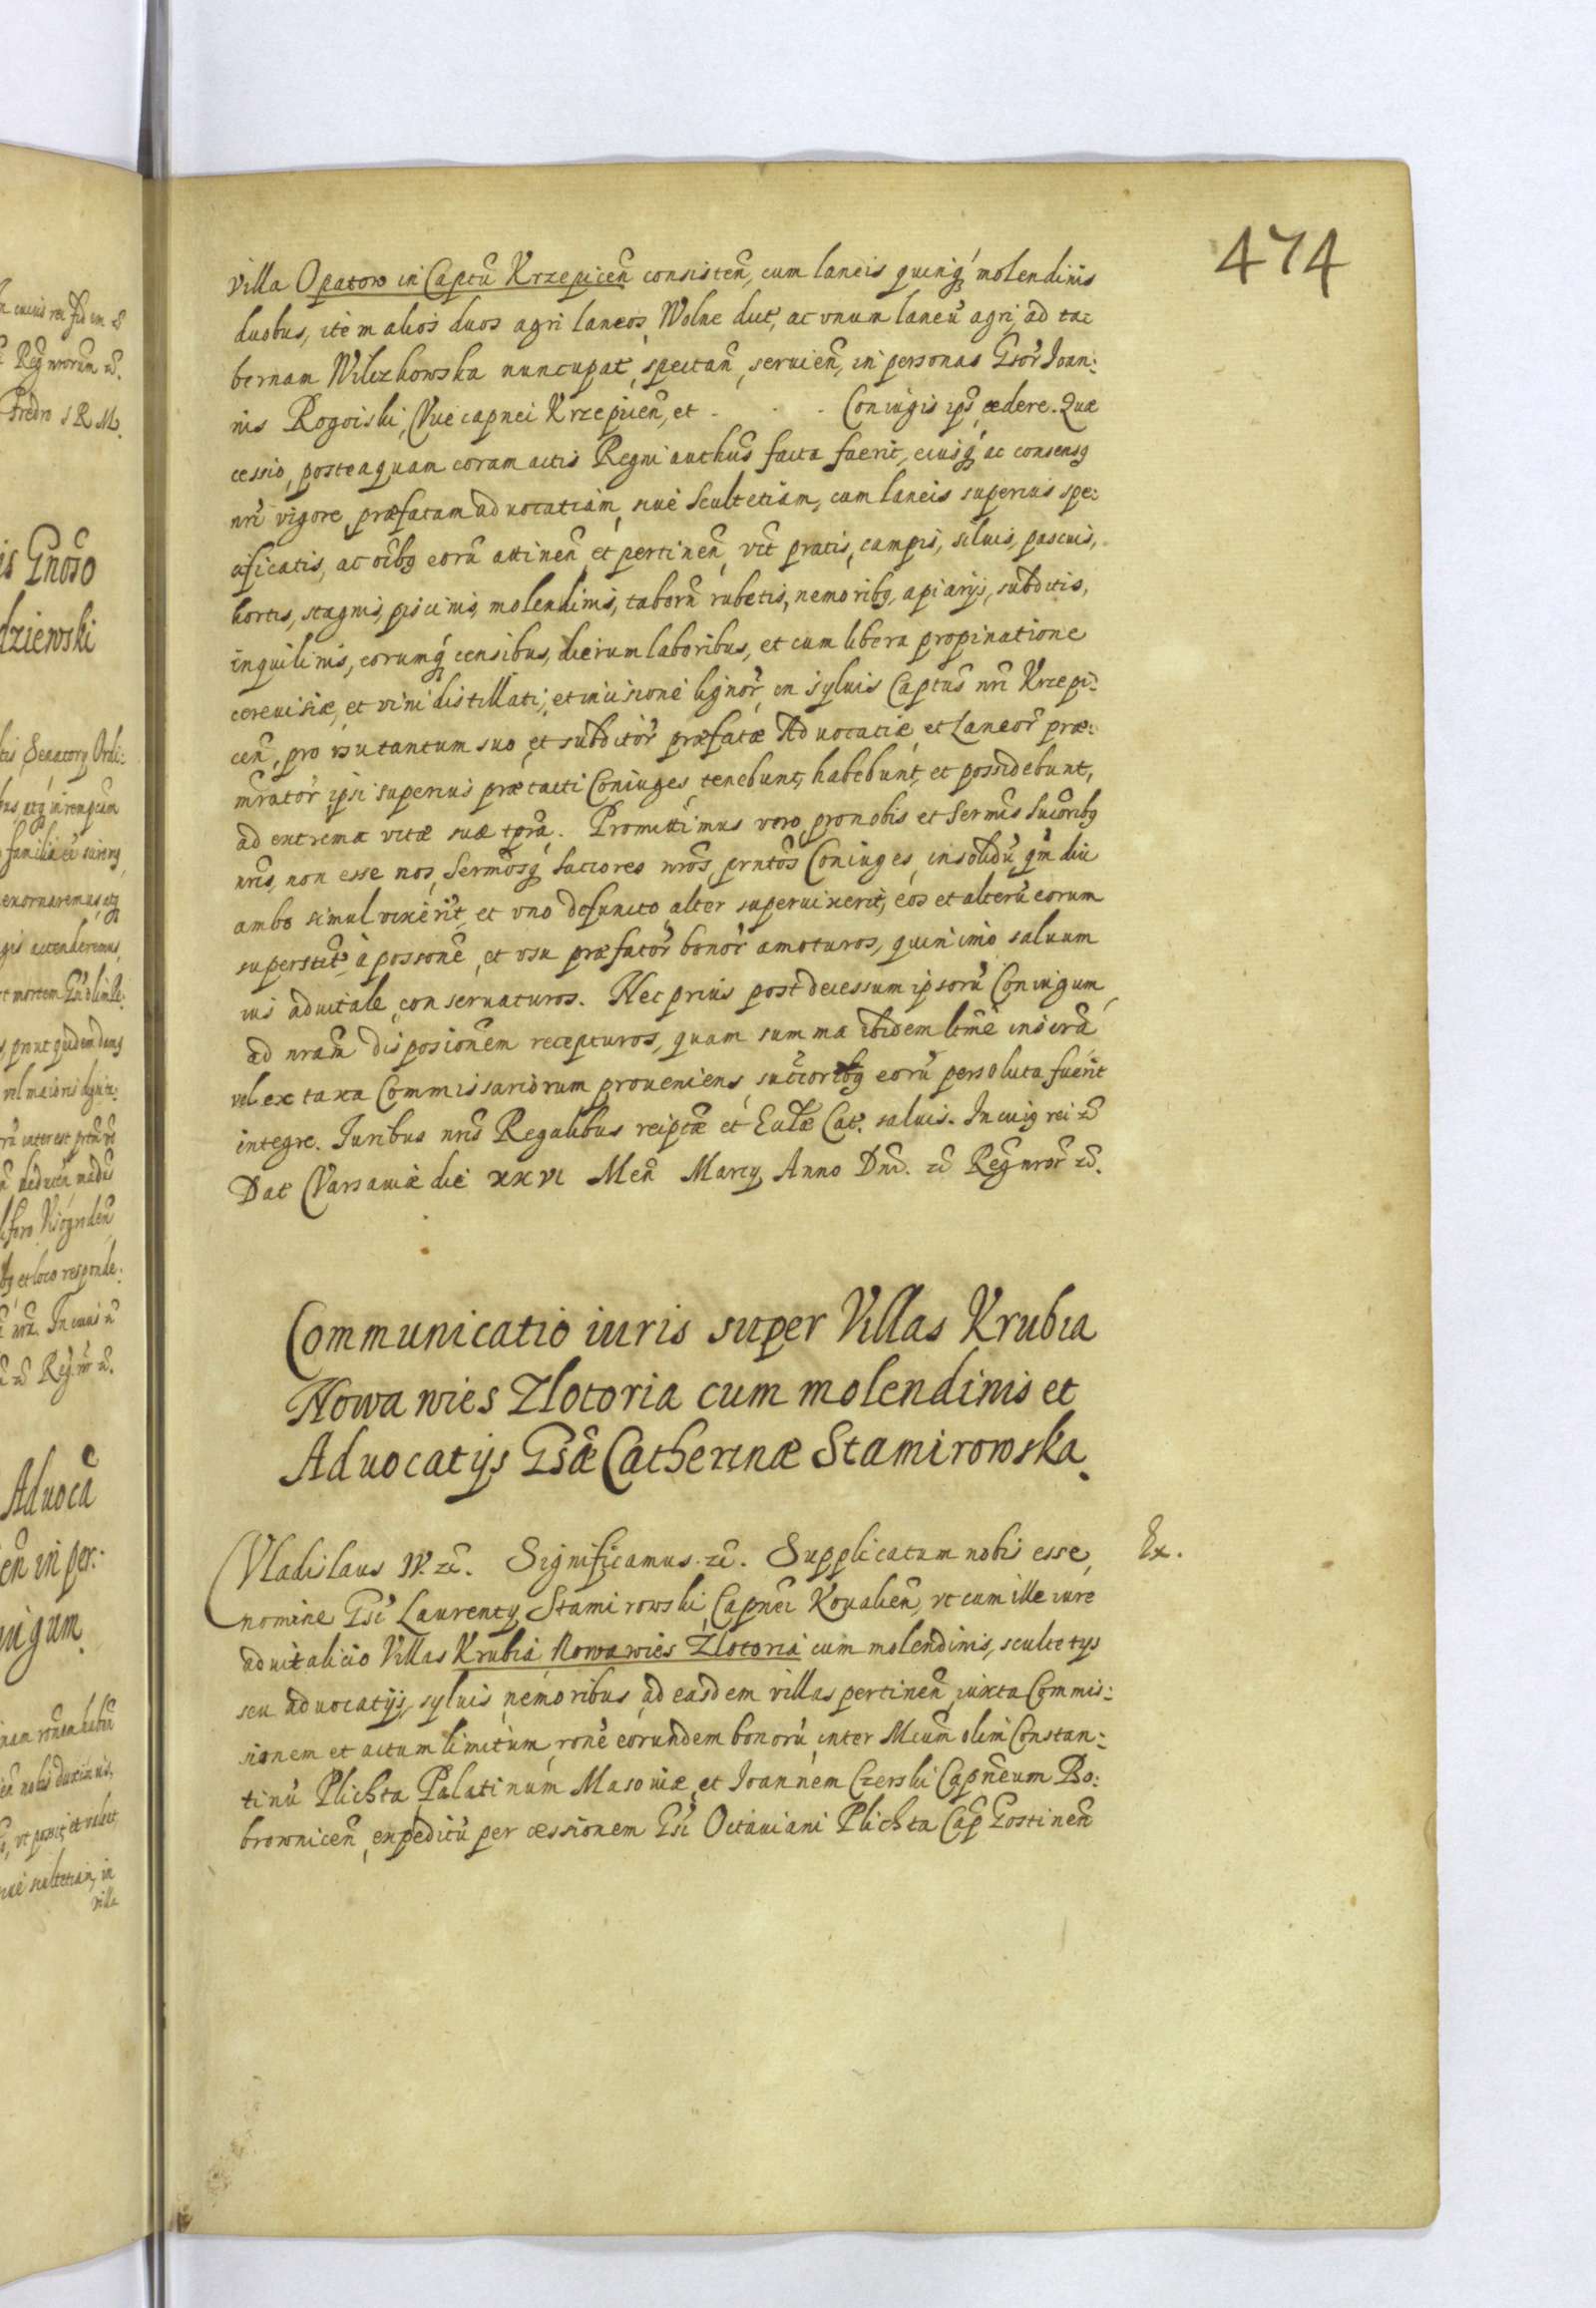 474
villa Opatow in Captũ Krzepiceñ consisteñ, cum laneis quinq́ molendinis
duobus, itèm alios duos agri laneos, Wolne dict, ac vnum laneũ agri, ad ta:
bernam Wilczkowska nuncupat, spectañ, seruieñ, in personas Gsor̃ Ioan:
nis Rogoiski, Vicecapnei Krzepiceñ, et . . . Coniugis ips̃, cedere. Quæ
cessio, posteaquam coram actis Regni authũs facta fuerit, eiusq́ ac consensq
nr̃i vigore, præfatam aduocatiam, siue Scultetiam, cum laneis superius spe:
cificatis, ac oĩbq eorũ attineñ et pertineñ, vic̃t pratis, campis, siluis, pascuis,
hortis, stagnis, piscinis, molendinis, taberñ rubetis, nemoribq, apiarijs, subditis,
inquilinis, eorumq́ censibus, dierum laboribus, et cum libera propinatione
cereuisiæ, et vini distillati, et incisione lignor̃, in syluis Captũs nr̃i Krzepi:
ceñ, pro vsu tantum suo, et subditor̃ præfatæ Aduocatiæ, et Laneor̃ præ:
m̃rator̃ ipsi superius prætacti Coniuges, tenebunt, habebunt, et possidebunt,
ad extrema vitæ suæ tp̃ra. Promittimus vero, pro nobis et Serm̃is Succ̃oribq
nr̃is, non esse nos, Serm̃osq́ Succores nr̃os, prñtos Coniuges, insolidũ, qm̃ diu
ambo simul vixerĩt, et vno defuncto, alter superuixerit, eos et alterũ eorum
superstit̃ à possoñe, et vsu præfator̃ bonor̃ amoturos, quinimò saluum
ius aduitale, conseruaturos. Nec prius post decessum ipsorũ Coniugum,
ad nr̃am disposiõnem recepturos, quam summa ibidem ltm̃e inscr̃a
vel ex taxa Commissariorum proueniens, succ̃oribq eorũ persoluta fuerit
integre. Iuribus nr̃is Regalibus reiptæ et Ecclæ Cat. saluis. In cuiq rei ꝛc̃
Dat Varsauiæ die xxvi Meñ Martij Anno Dñi. ꝛc̃ Reg̃ nror̃ ꝛc̃.
Communicatio iuris super Villas Krubia
Nowa wies Zlotoria cum molendinis et
Aduocatijs Gsæ Catherinæ Stamirowska.
Vladislaus IV. ꝛc̃. Significamus. ꝛc̃. Supplicatum nobis esse, Ex.
nomine Gsi Laurentij Stamirowski, Capnei Koualieñ, vt cum ille iure
aduitalicio Villas Krubia, Nowawies Zlotoria cum molendinis, scultetijs
seu aduocatijs, syluis, nemoribus, ad easdem villas pertineñ, iuxta Commis:
sionem et actum limitum, roñe eorundem bonorũ, inter Mcum̃ olim Constan:
tinũ Plichta, Palatinum Masoviæ, et Ioannem Czerski Capñeum Bo:
browniceñ, expeditũ per cessionem Gsi Octauiani Plichta Cap̃ Gostineñ